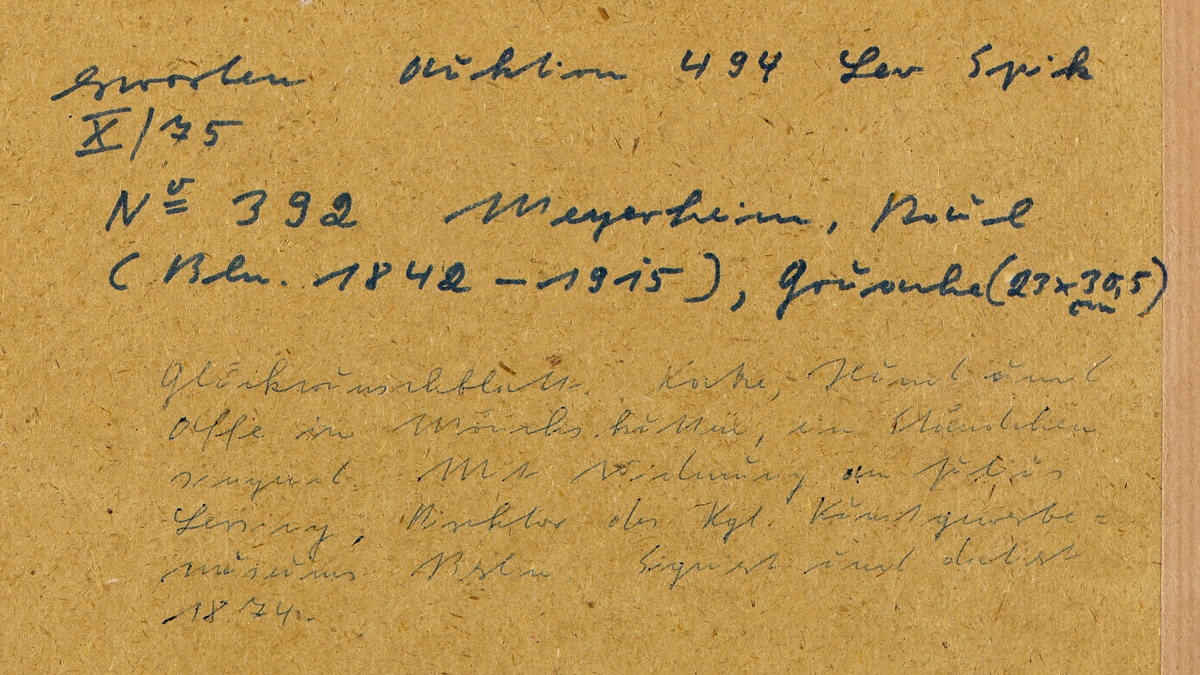 Erworben Auktion 494 Leo Spik
X/75
No 392 Meyerheim, Paul
(Bln. 1842 – 1915), Gouache (23 x 30,5)
cm
Glückwunschblatt. Katze, Hund und
Affe in Mönchskutten, ein Ständchen
singend. Mit Widmung an Julius
Lessing, Direktor des Kgl. Kunstgewerbe=
museums Berlin. Signiert und datiert
1874.